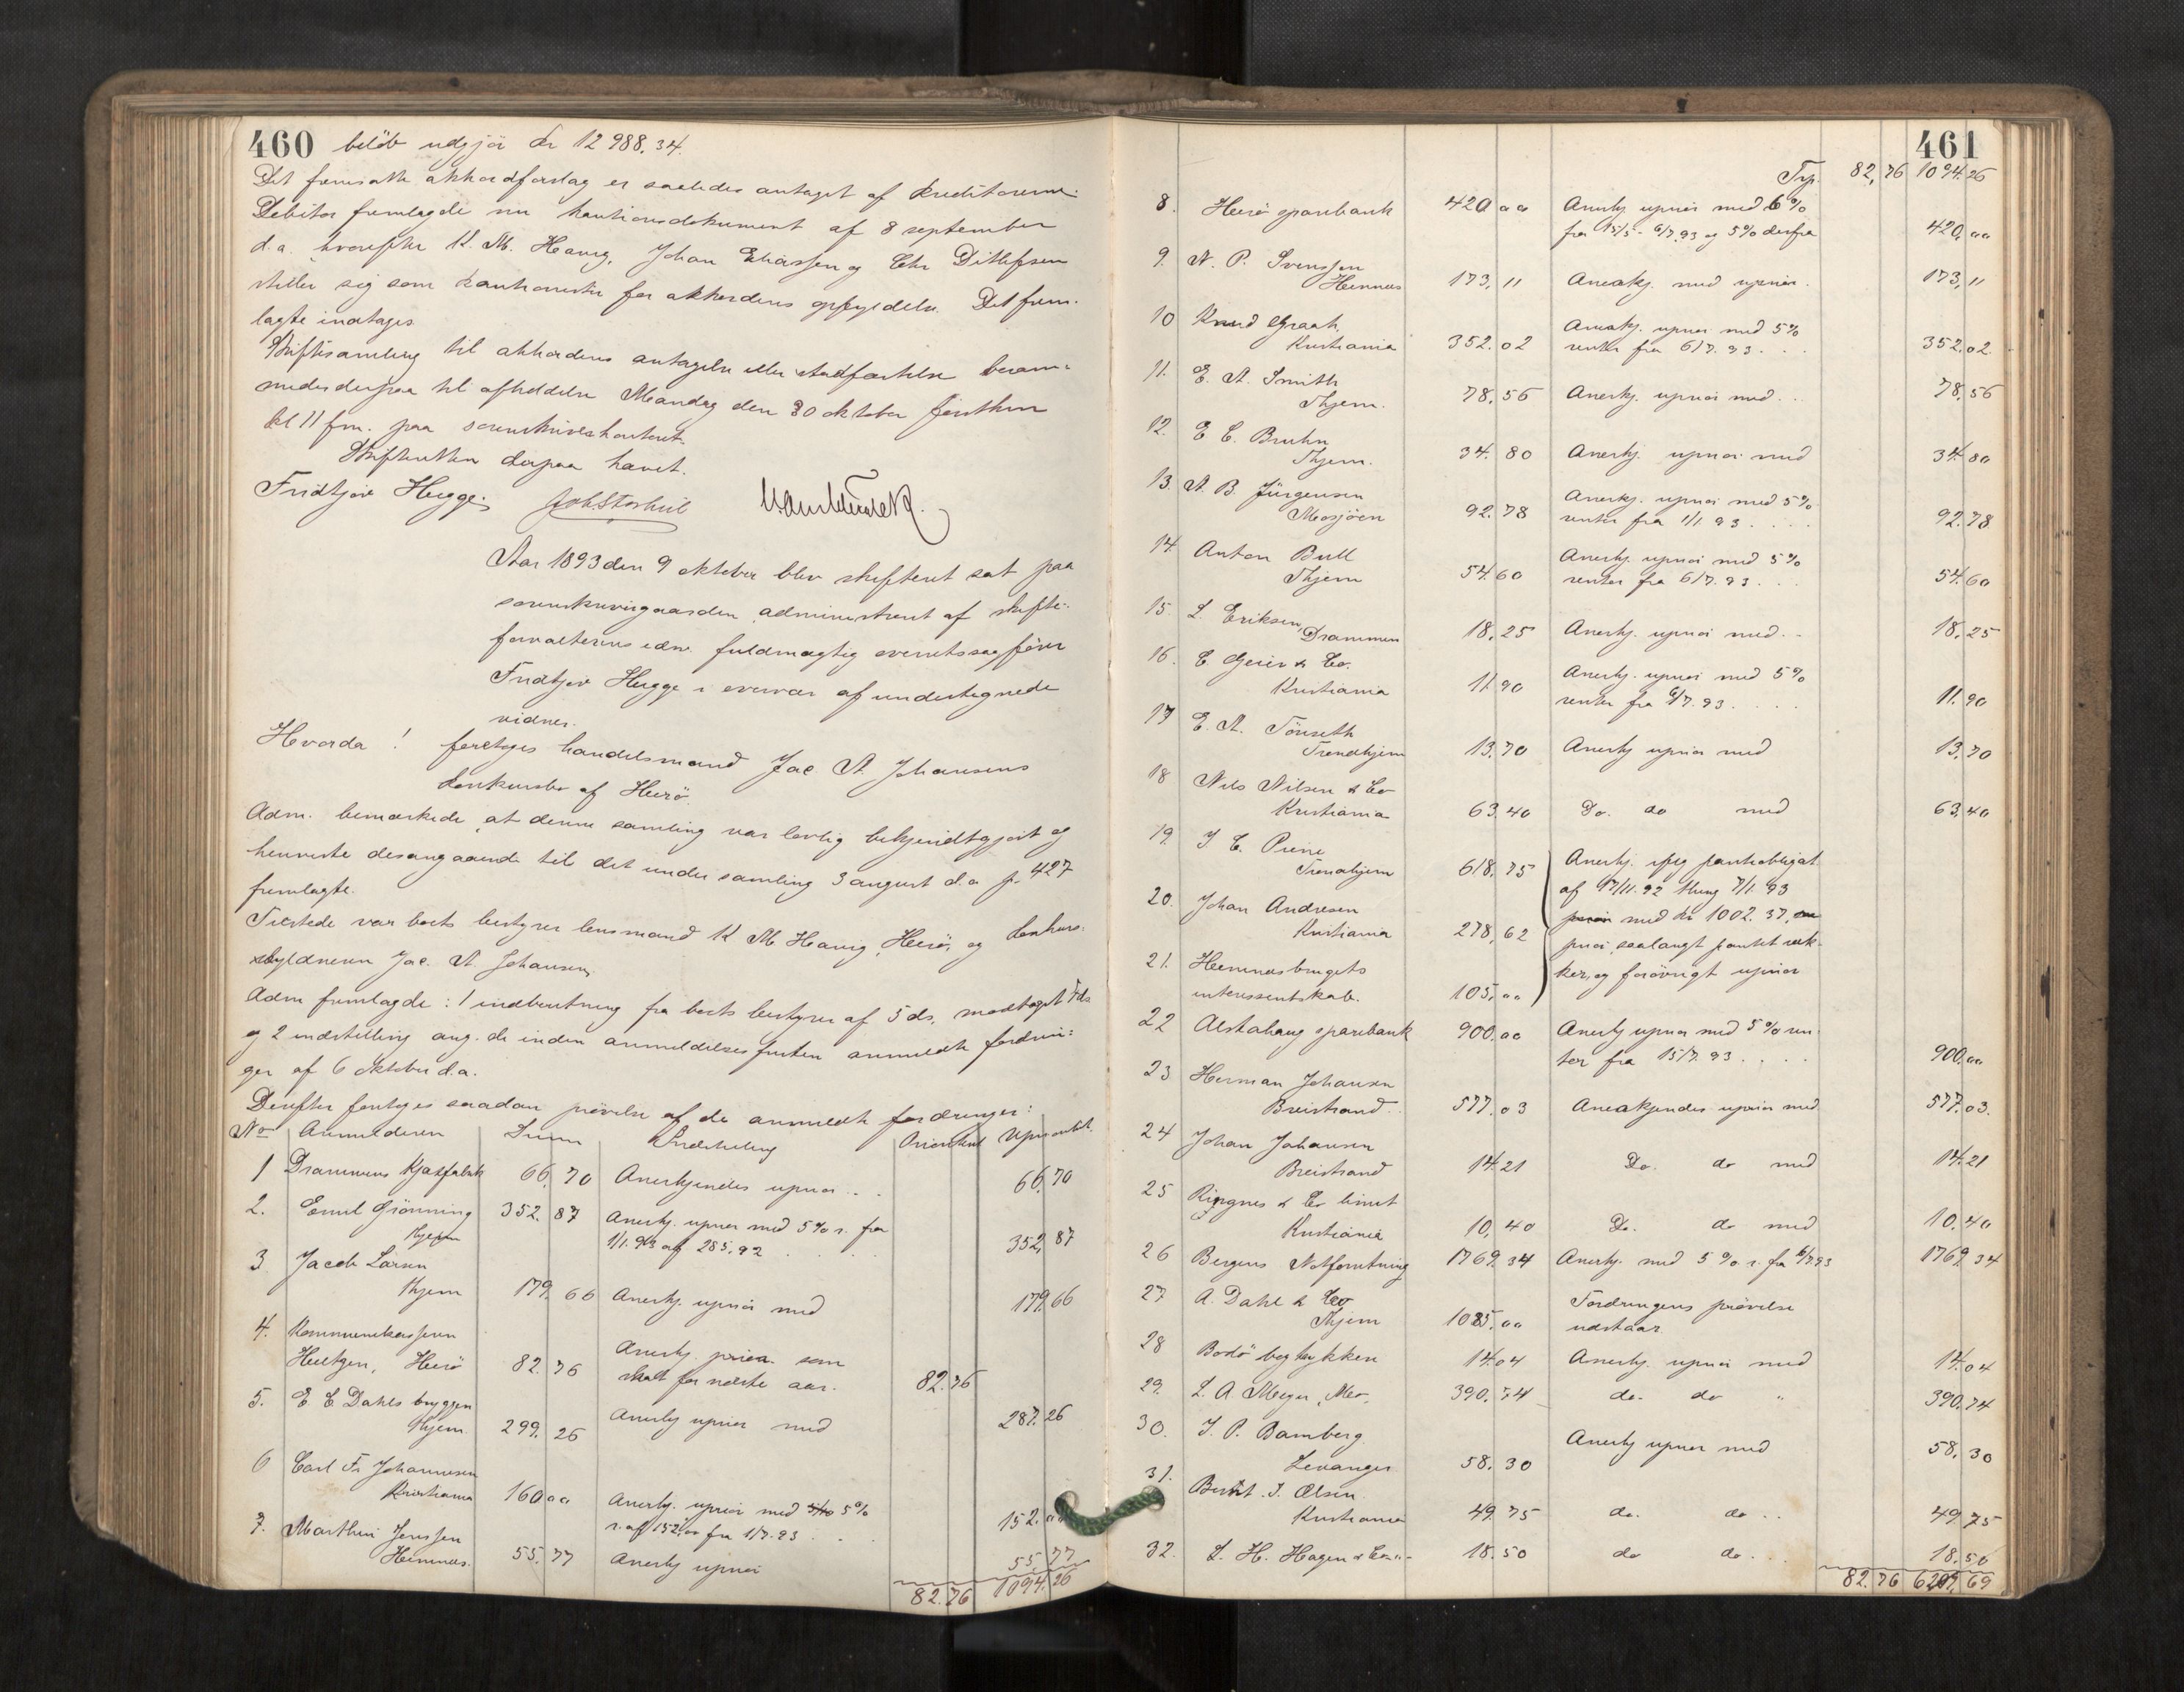 460 beløb udgjør kr 12 988.34.
Det fremsatte akkordforslag er saaledes antaget af kreditorerne.
Debitor fremlagde nu kautionsdokument af 8 september
d.a. hvorefter K. M. Haug, Johan Eliassen og Chr Ditlefsen
stiller sig som kautionister for akkordens opfyldelse. Det frem-
lagte indtages.
Skiftesamling til akkordens antagelse eller stadfæstelse beram-
medes derpaa til afholdelse Mandag den 30 oktober førsthen
kl 11 fm. paa sorenskriverkontoret.
Skifteretten derpaa hævet.
Fridtjov Hegge. Joh Storhil
Aar 1893 den 9 oktober blev skifteret sat paa
sorenskrivergaarden administreret af skifte-
forvalterens edsv. fuldmægtig overretssagfører
Fridtjov Hegge i overvær af undertegnede
vidner.
Hvorda! foretoges handelsmand Jac A Johansens
konkursbo af Herø.
Adm. bemærkede, at denne samling var lovlig bekjendtgjort og
henviste desangaaende til det under samling 3 august d.a. p. 427
fremlagte.
Tilstede var boets bestyrer lensmand K M Haug, Herø, og konkurs-
skyldneren Jac. A. Johansen.
Adm fremlagde: 1 indberetning fra boets bestyrer af 5 ds, modtaget
og 2 indstilling ang. de inden anmeldelsesfristen anmeldte fordrin-
ger af 6 oktober d.a.
Derefter foretoges saadan prøvelse af de anmeldte fordringer:
No Anmelderen Summ Indstilling Prioritet Uprioritet.
1 Drammens Kjærfabrik 66.70 Anerkjendes uprior . . 66.70
2. Emil Grønning 352.87 Anerkj. uprior med 5% r. fra
Thjem 1/1.93 af 285.92 . . . . 352.87
3 Jacob Larsen
Thjem 179.66 Anerkj. uprior med 179.66
4. Kommunekasseren
Anerkj. prior. som
Herø 82.76 skat for næste aar. 82.76
5. E C Dahls bryggeri
Thjem 299.26 Anerkj uprior med 287.26
6 Carl Fr Johannesen
Kristiania 160.00 Anerkj. uprior med 5%
r. af 152,00 fra 1/7.93 . . 152.00
7. Marthin Jenssen
Hemnæs. 55.77 Anerkj uprior 55.77
82.76 1094.26
461
Trp. 82,76 1094.26
8. Herø sparebank 420.00 Anerkj uprior med 6%
fra 15/5 - 6/7.93 og 5% derfra 420,00
9. N. P. Svenssen
Hemnæs 173,11 Anerkj. med uprior. 173,11
10 Knud Graah Anerkj. uprior med 5%
Kristiania 352.02 renter fra 6/7.93 . . . 352.02
11. E. A. Smith
Thjem. 78.56 Anerkj. uprior med. . . 78,56
12. E C. Bruhn
Thjem. 34.80 Anerkj. uprior med 34.80
13. A. B. Jürgensen Anerkj. uprior med 5%
Mosjøen 92.78 renter fra 1/1 93 . . . . 92.78
14. Anton Bull Anerkj. uprior med 5%
Thjem 54.60 renter fra 6/7.93 . . . 54.60
15. L. Eriksen,
Drammen 18.25 Anerkj. uprior med. - 18.25
16. C Geier & Co. Anerkj. uprior med 5%
Kristiania 11.90 renter fra 6/7.93 . . . . 11.90
17 E. A. Tønseth
Trondhjem 13.70 Anerkj uprior med 13.70
18 Nils Nilsen & Co
Kristiania 63.40 Do. do med 63,40
19. I C. Piene Anerkj. pantobligat
Trondhjem 618.75 af 17/11.92 7/1.93
20. Johan Andresen med kr 1002.37,
Kristiania 278,62 prior saalangt pantet ræk-
21. Hemnesbrugets ker, og forøvrigt uprior
interessentskab. 105.00
22 Alstahaug sparebank 900.00 Anerkj uprior med 5% ren-
ter fra 15/7.93 . . . . 900.00
23 Herman Johansen
Breistrand. 577.03 Anerkjendes uprior med 577.03.
24 Johan Johansen
Breistrand 14.21 Do. do med 14.21
25 Ringnes & Co limit
Kristiania 10,40 Do. do med 10.40
26 Bergens Notforretning 1769.34 Anerkj. med 5% r. fra 6/7.93 1769.34
27 A. Dahl & Co Fordringens prøvelse
Thjem 1085.00 udstaar.
28 Bodø bogtrykkeri 14.04 Anerkj. uprior med 14.04
29. L. A. Meyer, Mo. 390.74 do. do " 390.74
30. I. P. Bamberg Anerkj uprior med
Levanger 58.30 58.30
31. Bernt. I. Olsen
Kristiania 49.75 do. do . . 49.75
32. L. H. Hagen & Co 18.50 do do. . . 18.50
82.76 6207.69